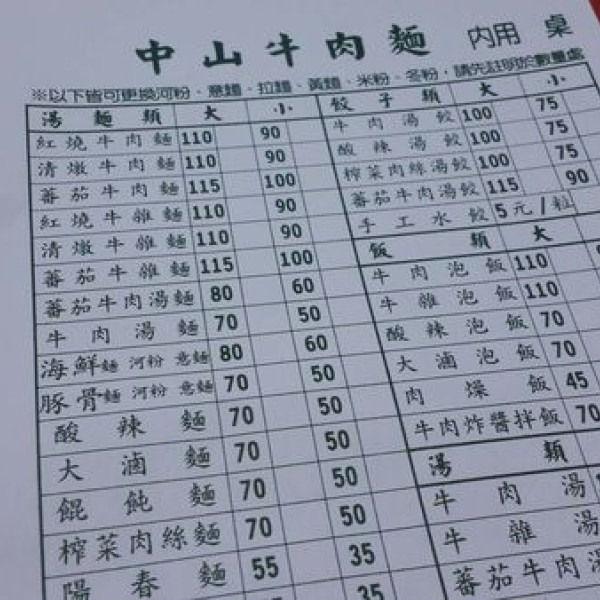 中山牛肉麵 內用 桌
※以下皆可更換河粉、意麵、拉麵、黃麵、米粉、冬粉，請先註明於數量處
湯麵類 大 小
紅燒牛肉麵 110 90
清燉牛肉麵 110 90
蕃茄牛肉麵 115 100
紅燒牛雜麵 110 90
清燉牛雜麵 110 90
蕃茄牛雜麵 115 100
蕃茄牛肉湯麵 80 60
牛肉湯麵 70 50
海鮮麵 河粉 意麵 80 60
豚骨麵 河粉 意麵 70 50
酸辣麵 70 50
大滷麵 70 50
餛飩麵 70 50
榨菜肉絲麵 70 50
陽春麵 55 35
35
餃子類 大 小
牛肉湯餃 100 75
酸辣湯餃 100 75
榨菜肉絲湯餃 100 75
蕃茄牛肉湯餃 115 90
手工水餃 5元/粒
飯類 大
牛肉泡飯 110
牛雜泡飯 110
酸辣泡飯 70
大滷泡飯 70
肉燥飯 45
牛肉炸醬拌飯 70
湯類
牛肉湯
牛雜湯
蕃茄牛肉湯